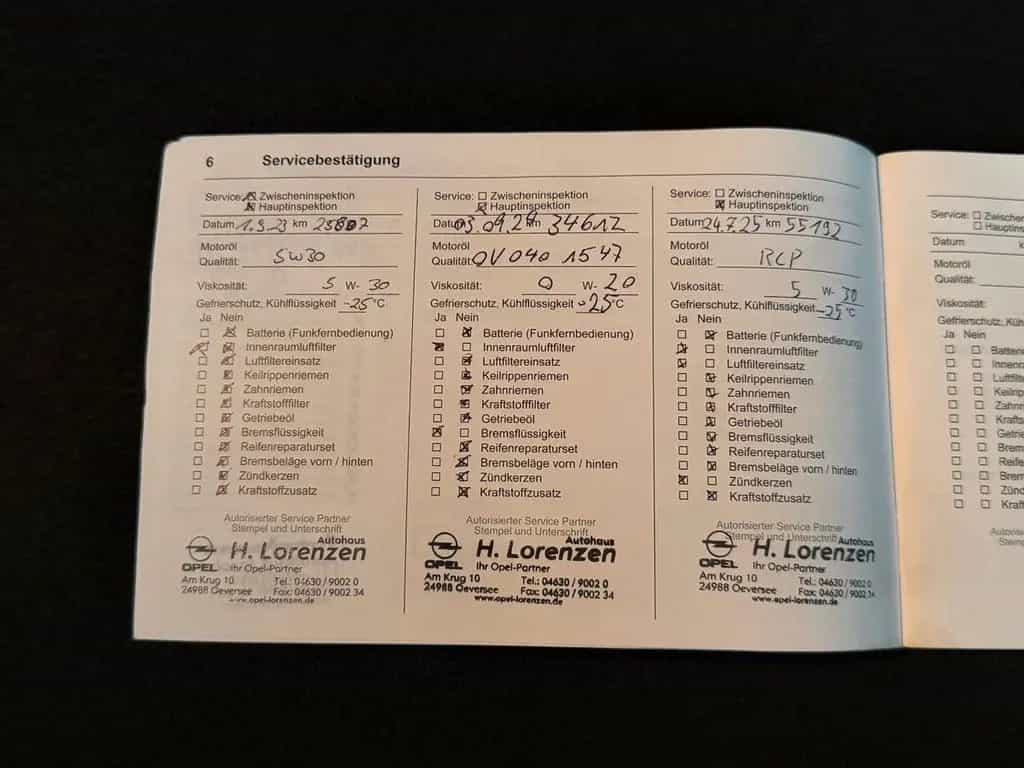 6 Servicebestätigung
Service: ☒ Zwischeninspektion
☒ Hauptinspektion
Datum 1.9.23 km 25807
Motoröl
Qualität: 5W30
Viskosität: 5 W- 30
Gefrierschutz, Kühlflüssigkeit -25 °C
Ja Nein
☐ ☒ Batterie (Funkfernbedienung)
☒ ☒ Innenraumluftfilter
☐ ☒ Luftfiltereinsatz
☐ ☒ Keilrippenriemen
☐ ☒ Zahnriemen
☐ ☒ Kraftstofffilter
☐ ☒ Getriebeöl
☐ ☒ Bremsflüssigkeit
☐ ☒ Reifenreparaturset
☐ ☒ Bremsbeläge vorn / hinten
☐ ☒ Zündkerzen
☐ ☒ Kraftstoffzusatz
Autorisierter Service Partner
Stempel und Unterschrift
Autohaus
H. Lorenzen
OPEL Ihr Opel-Partner
Am Krug 10 Tel.: 04630 / 9002 0
24988 Oeversee Fax: 04630 / 9002 34
www.opel-lorenzen.de
Service: ☐ Zwischeninspektion
☒ Hauptinspektion
Datum 03.09.24 km 34612
Motoröl
Qualität: OV 040 1547
Viskosität: 0 W- 20
Gefrierschutz, Kühlflüssigkeit -25 °C
Ja Nein
☐ ☒ Batterie (Funkfernbedienung)
☒ ☐ Innenraumluftfilter
☐ ☒ Luftfiltereinsatz
☐ ☒ Keilrippenriemen
☐ ☒ Zahnriemen
☐ ☒ Kraftstofffilter
☐ ☒ Getriebeöl
☒ ☐ Bremsflüssigkeit
☐ ☒ Reifenreparaturset
☐ ☒ Bremsbeläge vorn / hinten
☐ ☒ Zündkerzen
☐ ☒ Kraftstoffzusatz
Autorisierter Service Partner
Stempel und Unterschrift
Autohaus
H. Lorenzen
OPEL Ihr Opel-Partner
Am Krug 10 Tel.: 04630 / 9002 0
24988 Oeversee Fax: 04630 / 9002 34
www.opel-lorenzen.de
Service: ☐ Zwischeninspektion
☒ Hauptinspektion
Datum 24.7.25 km 55192
Motoröl
Qualität: RCP
Viskosität: 5 W- 30
Gefrierschutz, Kühlflüssigkeit -25 °C
Ja Nein
☐ ☒ Batterie (Funkfernbedienung)
☒ ☐ Innenraumluftfilter
☒ ☐ Luftfiltereinsatz
☐ ☒ Keilrippenriemen
☐ ☒ Zahnriemen
☐ ☒ Kraftstofffilter
☐ ☒ Getriebeöl
☐ ☒ Bremsflüssigkeit
☐ ☒ Reifenreparaturset
☐ ☒ Bremsbeläge vorn / hinten
☒ ☐ Zündkerzen
☐ ☒ Kraftstoffzusatz
Autorisierter Service Partner
Stempel und Unterschrift
Autohaus
H. Lorenzen
OPEL Ihr Opel-Partner
Am Krug 10 Tel.: 04630 / 9002 0
24988 Oeversee Fax: 04630 / 9002 34
www.opel-lorenzen.de
Service: ☐ Zwischen
☐ Hauptins
Datum k
Motoröl
Qualität:
Viskosität:
Gefrierschutz, Küh
Ja Nein
☐ ☐ Batterie
☐ ☐ Innen
☐ ☐ Luftfilt
☐ ☐ Keilrip
☐ ☐ Zahnr
☐ ☐ Krafts
☐ ☐ Getrie
☐ ☐ Brem
☐ ☐ Reife
☐ ☐ Brem
☐ ☐ Zünd
☐ ☐ Kraf
Autoris
Stemp